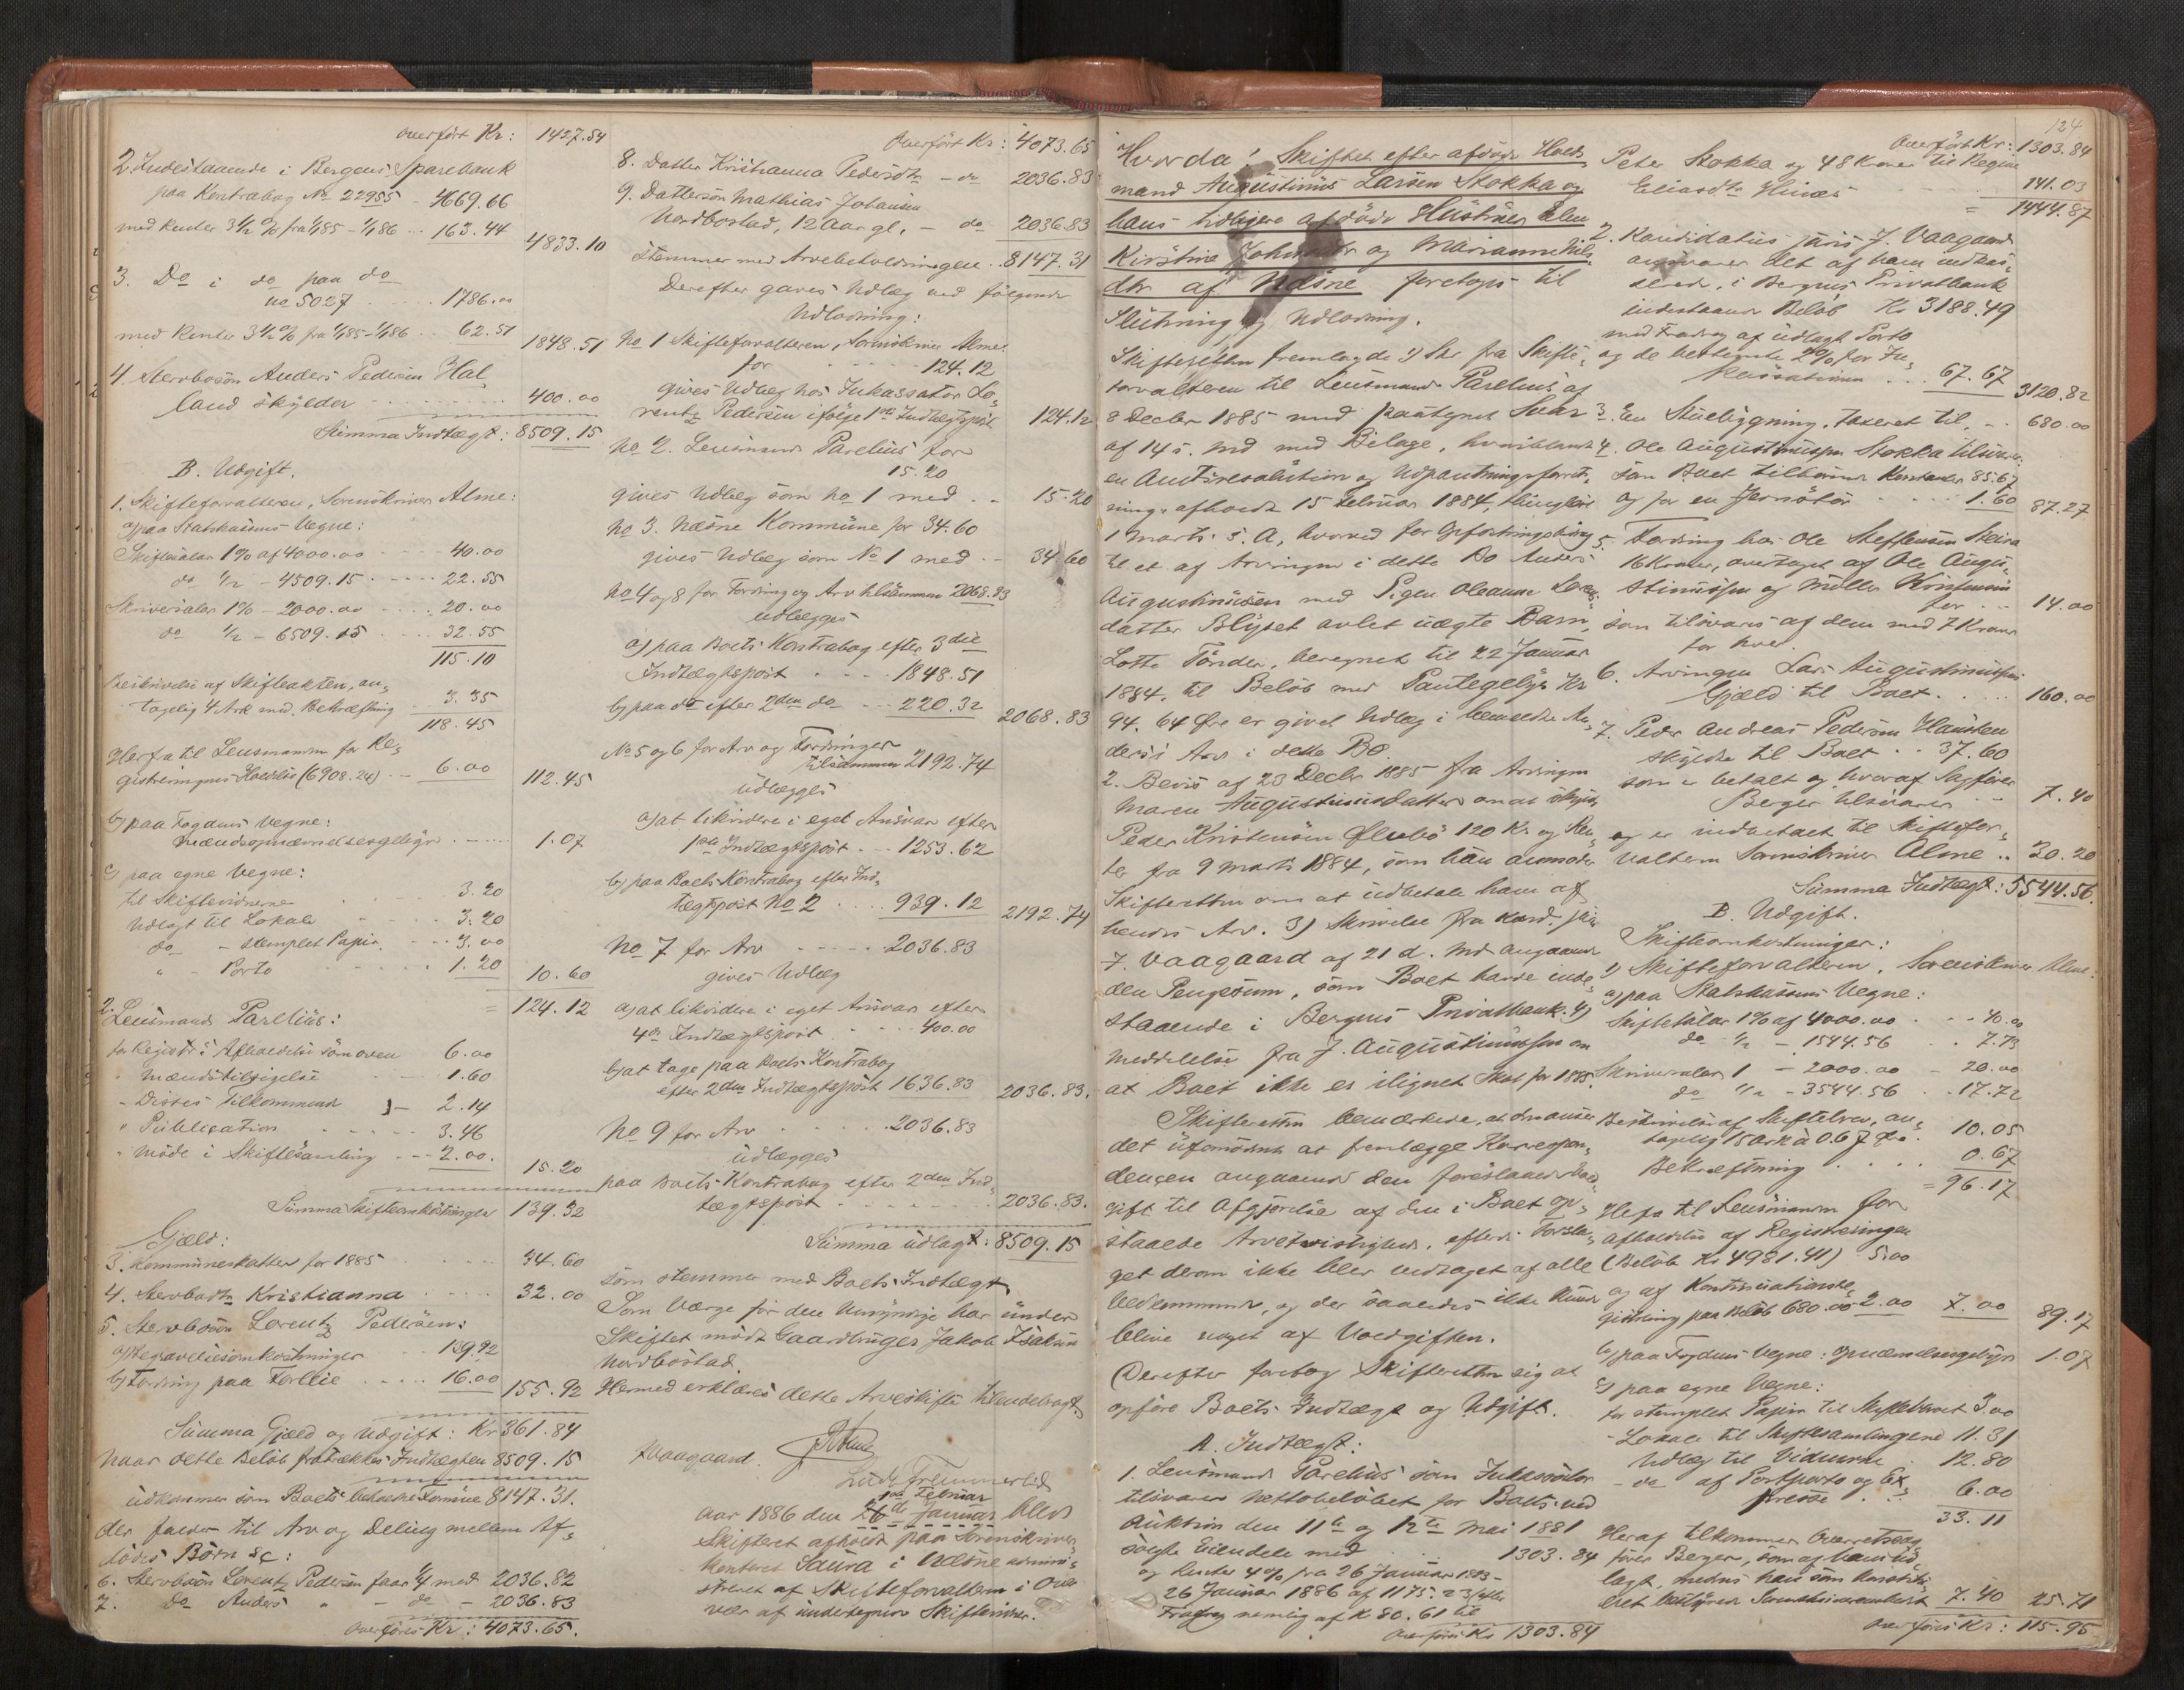 overført Kr: 1427.54
2 Indestaaende i Bergens Sparebank
paa Kontrabog No 22955 - 4669.66
med Renter 3½ % fra 1/1 85 - 1/1 86 .. 163.44 4833.10
3. Do i do paa do
No 5027 .... 1786.00
med Renter 3½ % fra 1/1 85 - 1/1 86 .. 62.51 1848.51
4. Stervbosøn Anders Pedersen Hal
land skylder 400.00
Summa Indtægt: 8509.15
B. Udgift.
1. Skifteforvalteren, Sorenskriver Alme:
a) paa Statskassens Vegne:
Skiftesalær 1% af 4000.00 40.00
do ½ - 4509.15 22.55
Skriversalær 1% - 2000.00 20.00
do ½ - 6509.15 32.55
115.10
Beskrivelse af Skifteakten, an„
tagelig 4 Ark med Bekræftning 3.35
118.45
Herfra til Lensmanden for Re„
gistreringens Afholdelse (6908.24) 6.00 112.45
b) paa Fogdens Vegne:
Mændsopnævnelsesgebyr 1.07
c) paa egne Vegne:
til Skiftevidnerne 3.20
Udlagt til Lokale 3.20
do - stemplet Papir 3.00
" - Porto 1.20 10.60
= 124.12
2. Lensmand Parelius:
for Registr.s Afholdelse som oven 6.00
" Mændstilsigelse 1.60
- Disses Tilkommende 2.14
" Publication 3.46
- Møde i Skiftesamling 2.00. 15.20
Summa Skifteomkostninger 139.32
Gjæld:
3. Kommuneskatter for 1885 34.60
4. Stervbodtr Kristianna 32.00
5. Stervbosøn Lorentz Pedersen:
a) Begravelsesomkostninger 139.92
b) Fordring paa Tørllie 16.00 155.92
Summa Gjæld og Udgift: Kr 361.84
Naar dette Beløb fratrækkes Indtægten 8509.15
udkommer som Boets beholdne Formue 8147.31.
der falder til Arv og Deling mellem Af„
dødes Børn &c:
6. Stervbosøn Lorentz Pedersen faar ¼ med 2036.82
7. Do Anders " - do - 2036.83
overføres Kr: 4073.65.
Overført Kr: 4073.65
8. Datter Kristianna Pedersdtr - do 2036.83
9. Dattersøn Mathias Johansen
Nordbostad, 12 Aar gl. - do 2036.83
Stemmer med Arvebeholdningen. 8147.31
Derefter gaves Udlæg ved følgende
Udlodning:
No 1 Skifteforvalteren, Sorenskriver Alme
for 124.12
gives Udlæg hos Inkassator Lo„
rentz Pedersen ifølge 1ste Indtægtspost 124.12
No 2. Lensmand Parelius for
15.20
gives Udlæg som No 1 med 15.20
No 3. Næsne Kommune for 34.60
gives Udlæg som No 1 med 34.60
No 4 og 8 for Fordring og Arv tilsammen 2068.83
udlægges
a) paa Boets Kontrabog efter 3die
Indtægtspost 1848.51
b) paa do efter 2den do 220.32 2068.83
No 5 og 6 for Arv og Fordringer
tilsammen 2192.74
udlægges
a) at likvidere i eget Ansvar efter
1ste Indtægtspost 1253.62
b) paa Boets Kontrabog efter Ind„
tægtspost No 2 939.12 2192.74
No 7 for Arv 2036.83
gives Udlæg
a) at likvidere i eget Ansvar efter
4de Indtægtspost 400.00
b) at tage paa Boets Kontrabog
efter 2den Indtægtspost 1636.83 2036.83.
No 9 for Arv 2036.83
udlægges
paa Boets Kontrabog efter 2den Ind„
tægtspost 2036.83.
Summa udlagt: 8509.15
som stemmer med Boets Indtægt
Som Værge for den Umyndige har under
Skiftet mødt Gaardbruger Jakob Isaksen
Nordbostad.
Hermed erklæres dette Arveskifte tilendebragt.
Vaagaard.
1ste Februar
Aar 1886 den 26de Januar blev
Skifteret afholdt paa Sorenskriver„
kontoret Saura i Næsne admini„
streret af Skifteforvalteren i Over
vær af undertegnede Skiftevidner.
124
Hvorda: Skiftet efter afdøde Huus
mand Augustinus Larsen Stokka og
hans tidligere afdøde Hustruer Elen
Kirstine Johnsdtr og Marianne Nils
dtr af Næsne foretoges til
Slutning og Udlodning.
Skifteretten fremlagde 1) Skr. fra Skifte„
forvalteren til Lensmand Parelius af
8 Decbr 1885 med paategnet Svar
af 14 s. Md med Bilage, hvoriblandt
en Amtsresolution og Udpantningsforret„
ning afholdt 15 Februar 1884, thinglæst
1 Marts s. A, hvorved for Opfostringsbidrag
til et af Arvingen i dette Bo Anders
Augustinussen med Pigen Oleanna Lorents
datter Blyset avlet uægte Barn,
Lotte Tønder, beregnet til 22 Januar
1884, til Beløb med Pantegebyr Kr
94.64 Øre er givet Udlæg i bemeldte An„
ders's Arv i dette Bo.
2. Bevis af 23 Decbr 1885 fra Arvingen
Maren Augustinusdatter om at skylde
Peder Kristensen Ølubø 120 Kr og Ren
ter fra 9 Marts 1884, som hun anmoder
Skifteretten om at udbetale ham af
hendes Arv. 3) Skrivelse fra Kand. jur
J. Vaagaard af 21 d. Md angaaende
den Pengesum, som Boet havde inde„
staaende i Bergens Privatbank. 4)
Meddelelse fra J. Augustinussen om
at Boet ikke er ilignet Skat for 1885.
Skifteretten bemærkede, at den anser
det ufornødent at fremlægge Korrespon„
dencen angaaende den foreslaaede Vold
gift til Afgjørelse af den i Boet op„
staaede Arvetvistighed, efterdi Forsla„
get derom ikke blev vedtaget af alle
Vedkommende, og der saaledes ikke kunde
blive noget af Voldgiften.
Derefter foretog Skifteretten sig at
opføre Boets Indtægt og Udgift.
A. Indtægt:
1. Lensmand Parelius som Inkassator
tilsvarer Nettobeløbet for Boets ved
Auktion den 11te og 12te Mai 1881
solgte Eiendele med 1303.84
og Renter 4% fra 26 Januar 1883 -
26 Januar 1886 af 1175.23 efter
Fradrag nemlig af K 80.61 til
Overføres Kr 1303.84
Overført Kr: 1303.84
Peter Stokka og 48 Kroner til Regine
Eliasdtr Hinæs 141.03
= 1444.87
2. Kandidatus juris J. Vaagaard
ansvarer det af ham indkas„
serede, i Bergens Privatbank
indestaaende Beløb Kr 3188.49
med Fradrag af udlagt Porto
og de betingede 2% for In„
kassationen ... 67.67 3120.82
3. En Stuebygning, taxeret til, 680.00
4. Ole Augustinussen Stokka tilsvarer
som Boet tilkommende Kontanter 85.67
og for en Jernstør 1.60 87.27
5. Fordring hos Ole Steffensen Steira
16 Kroner, overtaget af Ole Augu„
stinussen og Møller Kristensen
for 14.00
som tilsvares af dem med 7 Kroner
for hver.
6. Arvingen Lars Augustinussens
Gjæld til Boet. 160.00
7. Peder Andreas Pedersen Hansten
skyldte til Boet .. 37.60
som er betalt og hvoraf Sagfører
Berger tilsvarer 7.40
og er indbetalt til Skiftefor„
valteren Sorenskriver Alme .. 30.20
Summa Indtægt: 5544.56.
B. Udgift.
Skifteomkostninger:
1) Skifteforvalteren, Sorenskriver Alme:
a) paa Statskassens Vegne:
Skiftesalær 1% af 4000.00 40.00
do ½ - 1544.56 7.73
Skriversalær 1 - 2000.00 20.00
do ½ - 3544.56 17.72
Beskrivelse af Skiftebrev, an„
tagelig 15 Ark à 0.67 10.05
Bekræftning 0.67
= 96.17
Herfra til Lensmanden for
Afholdelse af Registreringen
(Beløb Kr 4981.41) 5.00
og af Kontinuationsre„
gistrering paa Beløb 680.00 2.00 7.00 89.17
b) paa Fogdens Vegne: Opnævnelsesgebyr 1.07
c) paa egne Vegne:
for stemplet Papir til Skiftebrevet 3.00
- Lokale til Skiftesamlingene 11.31
Udlæg til Vidnerne 12.80
- do af Postporto og Ex„
presse 6.00
33.11
Heraf tilkommer Overretssag„
fører Berger, som af ham ud„
lagt, medens han som konstitu„
eret bestyrede Sorenskriverembedet 7.40 25.71
Overføres Kr: 115.95